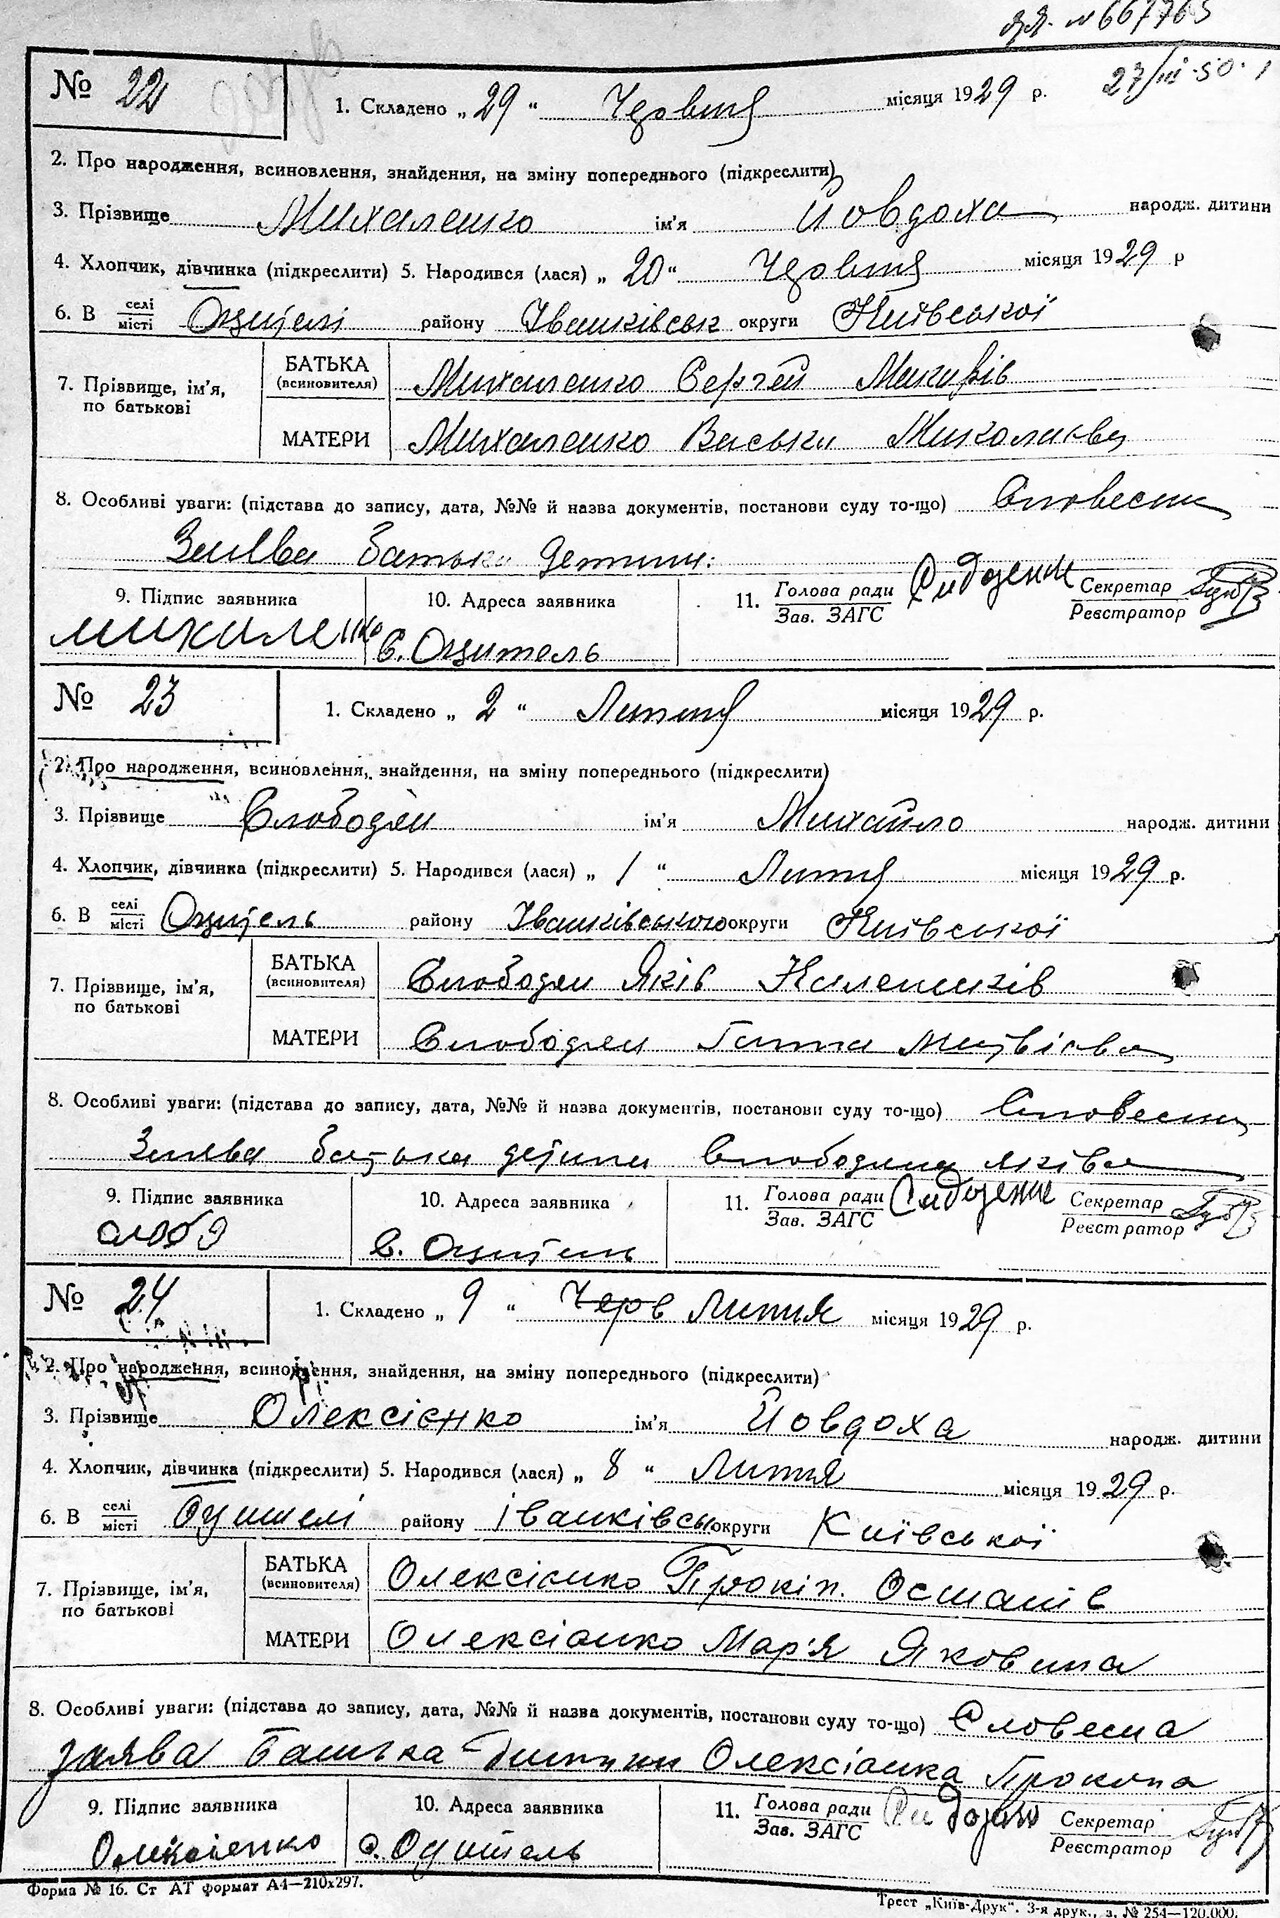 № 667765
27/III 50.
№ 22
1. Складено „ 29 “ Червня місяця 1929 р.
2. Про народження, всиновлення, знайдення, на зміну попереднього (підкреслити)
3. Прізвище Михаленко ім'я Йовдоха народж. дитини
4. Хлопчик, дівчинка (підкреслити) 5. Народився (лася) „ 20 “ Червня місяця 1929 р
6. В селі місті Оцителі району Іванківськ округи Київської
7. Прізвище, ім'я, по батькові
БАТЬКА (всиновителя) Михаленко Сергей
МАТЕРИ Михаленко Васька Миколаєва
8. Особливі уваги: (підстава до запису, дата, №№ й назва документів, постанови суду то-що) Словесна
Заява батька детини.
9. Підпис заявника
10. Адреса заявника
11. Голова ради Зав. ЗАГС
Секретар Реєстратор
Михаленко
с. Оцитель
№ 23
1. Складено „ 2 “ Липня місяця 1929 р.
2. Про народження, всиновлення, знайдення, на зміну попереднього (підкреслити)
3. Прізвище Слободян ім'я Михайло народж. дитини
4. Хлопчик, дівчинка (підкреслити) 5. Народився (лася) „ 1 “ Липня місяця 1929 р.
6. В селі місті Оцитель району Іванківського округи Київської
7. Прізвище, ім'я, по батькові
БАТЬКА (всиновителя) Слободян Яків
МАТЕРИ Слободян Ганна Матвієва
8. Особливі уваги: (підстава до запису, дата, №№ й назва документів, постанови суду то-що) Словесна
Заява батька детини Слободяна Яківа
9. Підпис заявника
10. Адреса заявника
11. Голова ради Зав. ЗАГС
Секретар Реєстратор
с. Оцитель
№ 24
1. Складено „ 9 “ Черв Липня місяця 1929 р.
2. Про народження, всиновлення, знайдення, на зміну попереднього (підкреслити)
3. Прізвище Олексієнко ім'я Йовдоха народж. дитини
4. Хлопчик, дівчинка (підкреслити) 5. Народився (лася) „ 8 “ Липня місяця 1929 р.
6. В селі місті Оцителі району Іванківськ округи Київської
7. Прізвище, ім'я, по батькові
БАТЬКА (всиновителя) Олексієнко Прокіп Остапів
МАТЕРИ Олексієнко Мар'я Яковина
8. Особливі уваги: (підстава до запису, дата, №№ й назва документів, постанови суду то-що) Словесна
заява Батька дитини Олексієнка Прокопа
9. Підпис заявника
10. Адреса заявника
11. Голова ради Зав. ЗАГС
Секретар Реєстратор
Олексієнко
с. Оцитель
Форма № 16. Ст АТ формат А4—210x297.
Трест „Київ-Друк“. 3-я друк., з. № 254—120.000.